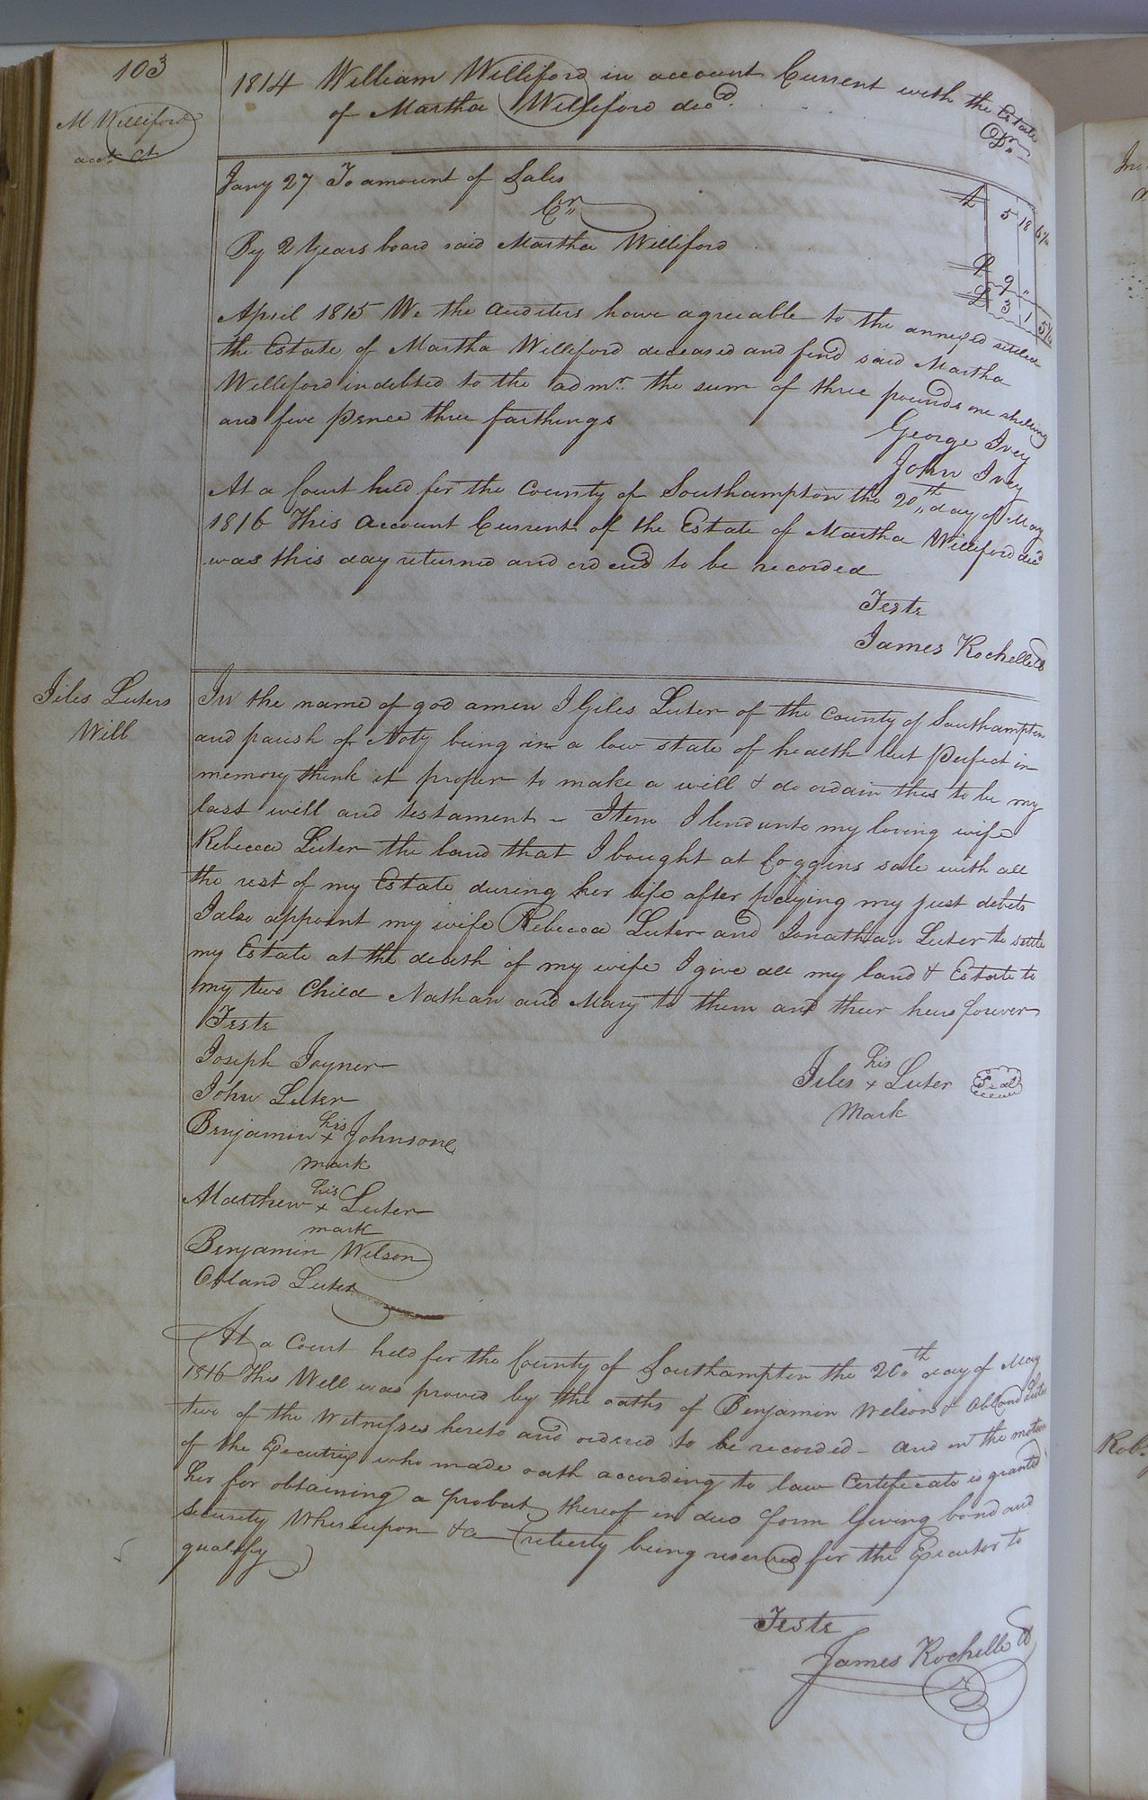 103
M Williford
acct Ct
1814 William Williford in account Current with the Estate
of Martha Williford decd.
Dr.
Jany 27 To amount of Sales £ 5 18 6¼
Cr
By 2 Years board said Martha Williford £ 9 "
£ 3 1 5¾
April 1815 We the auditers have agreeable to the annexed settled
the Estate of Martha Williford deceased and find said Martha
Williford indebted to the admr. the sum of three pounds one shilling
and five pence three farthings
George Ivey
John Ivey
At a Court held for the County of Southampton the 20th day of May
1816 This account Current of the Estate of Martha Williford decd
was this day returned and ordend to be recorded
Teste
James Rochelle
Jiles Luters
Will
In the name of god amen I Giles Luter of the County of Southampton
and parish of Noty being in a low state of health but perfect in
memory think it proper to make a will & do ordain this to be my
last will and testament - Item I lend unto my loving wife
Rebecca Luter the land that I bought at Coggins sale with all
the rest of my Estate during her life after paying my just debts
I also appoint my wife Rebecca Luter and Jonathan Luter to settle
my Estate at the death of my wife I give all my land & Estate to
my two Child Nathan and Mary to them and their heirs forever
Teste
Joseph Joyner
John Luter
Benjamin his x Johnson
mark
Matthew his x Luter
mark
Benjamin Wilson
Obland Luter
his
Jiles x Luter Seal
Mark
At a Court held for the County of Southampton the 20th day of May
1816 This Will was proved by the oaths of Benjamin Wilson & Obland Luter
two of the Witnesses hereto and ordered to be recorded - and on the motion
of the Executrix who made oath according to law Certificate is granted
her for obtaining a probat thereof in due form Giving bond and
security Whereupon &c liberty being reserved for the Executor to
qualify
Teste
James Rochelle